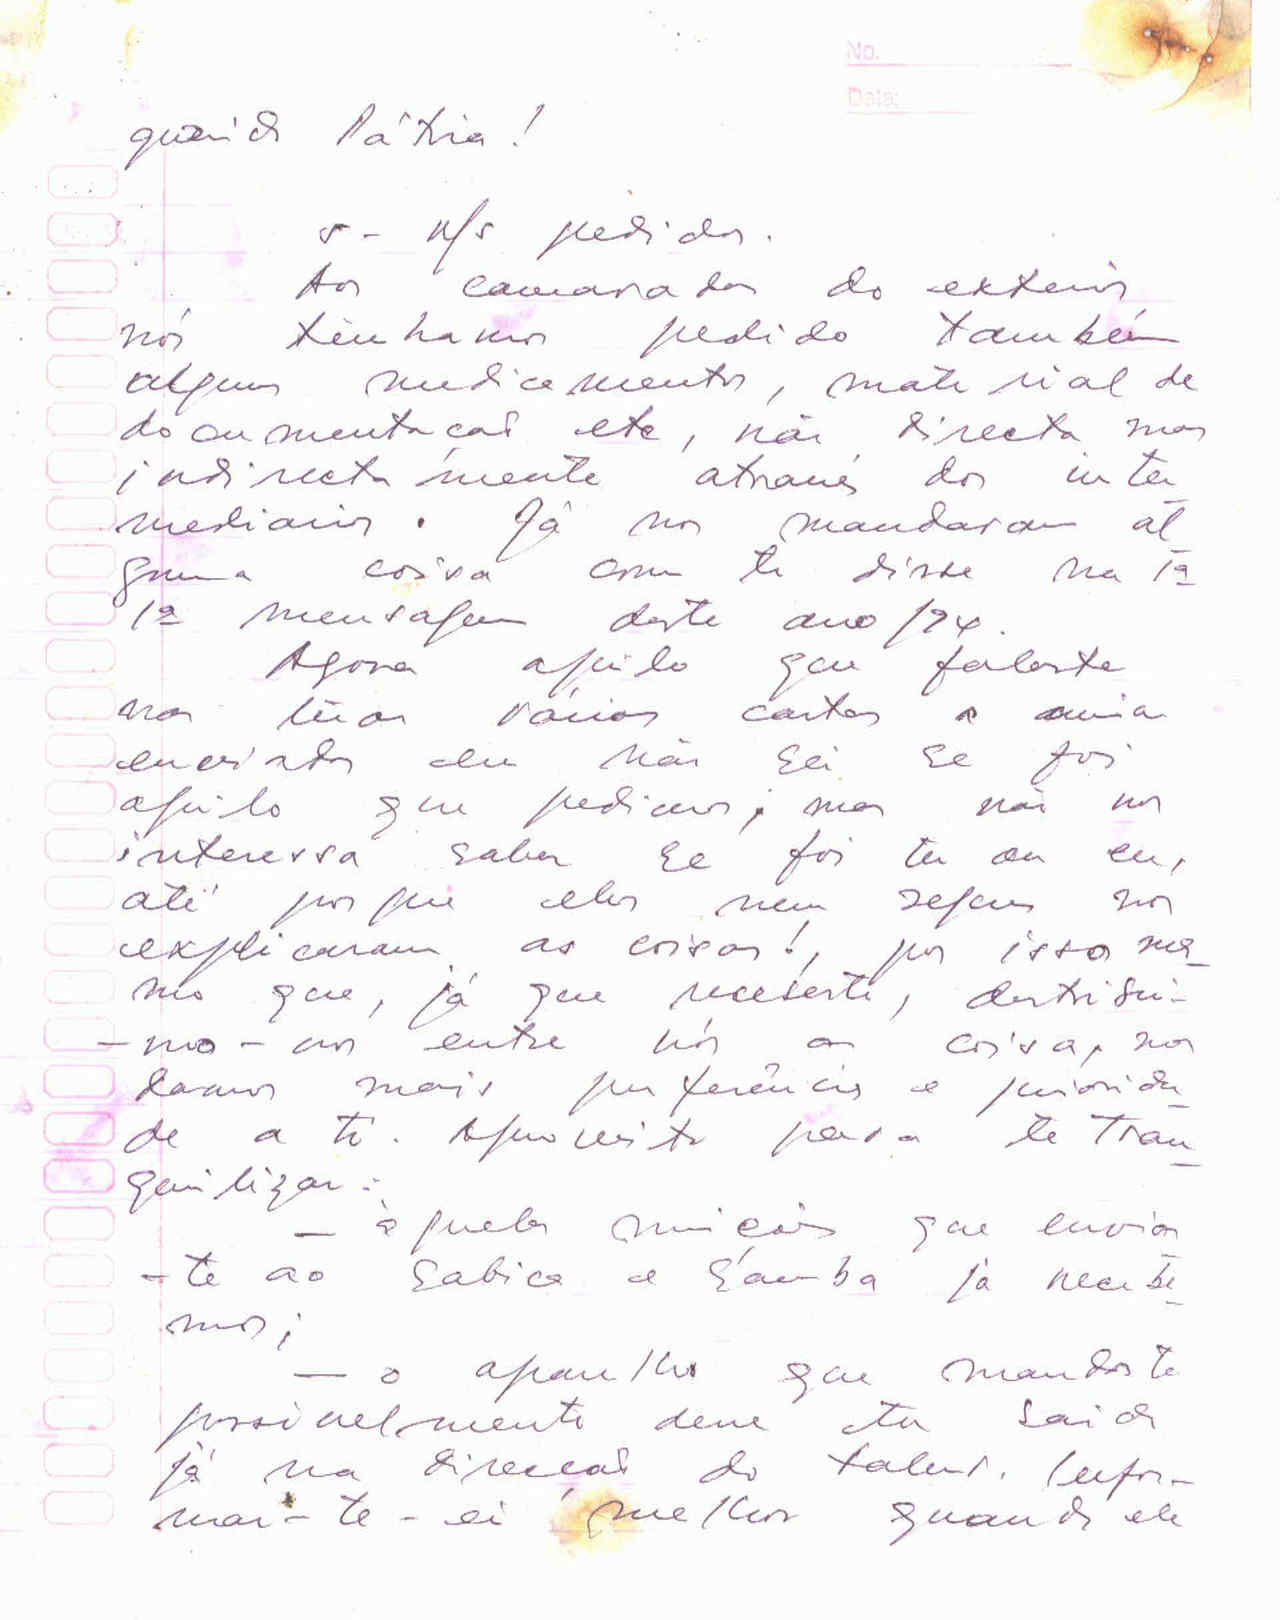 No.
Data:
querida Pátria!
5- n/s pedidos.
Aos camaradas do exterior
nós tínhamos pedido também
alguns medicamentos, material de
documentação etc, não directa mas
indirectamente através dos inter
mediários. Já nos mandaram al
guma coisa com te disse na 1ª
1ª mensagem deste ano/94.
Agora aquilo que falaste
nas tuas várias cartas
enviadas eu não sei se foi
aquilo que pedimos; mas não nos
interessa saber se foi tu ou eu,
até porque eles nem sequer nos
explicaram as coisas!, por isso mes
mo que, já que recebeste, distribui-
-mo-nos entre nós a coisa, nos
damos mais preferência e priorida
de a ti. Aproveito para te tran
quilizar:
- aquelas munições que envias
-te ao Sabica e Samba já recebe
mos;
- o aparelho que mandaste
possivelmente deve ter saido
já na direcção do Infor-
mar-te-ei melhor quando ele